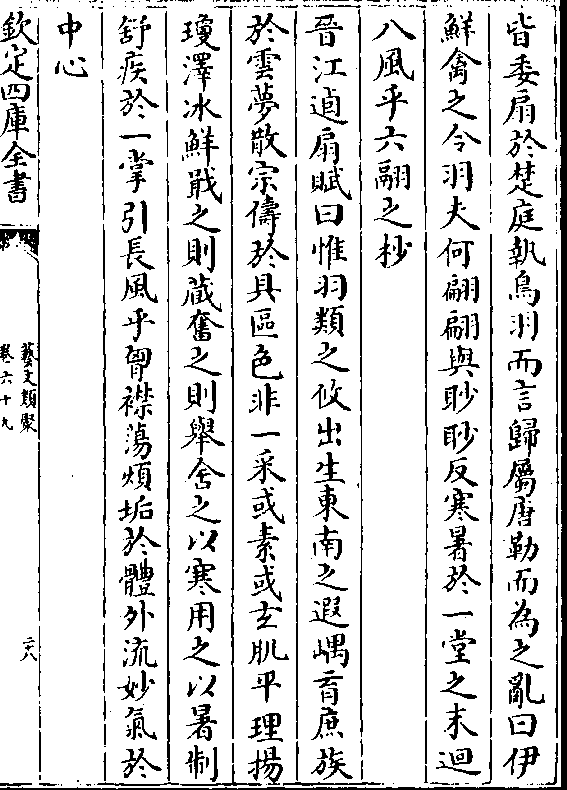 皆委扇於楚庭執鳥羽而言歸屬唐勒而為之亂曰伊
鮮禽之令羽夫何翩翩與眇眇反寒暑於一堂之末迴
八風乎六翮之杪
晉江逌扇賦曰惟羽類之攸出生東南之遐嵎育庶族
於雲夢散宗儔於具區色非一采或素或玄肌平理揚
瓊澤冰鮮戢之則藏奮之則舉舍之以寒用之以暑制
舒疾於一掌引長風乎胷襟蕩煩垢於體外流妙氣於
中心
欽定四庫全書
藝文類聚
卷六十九
二八